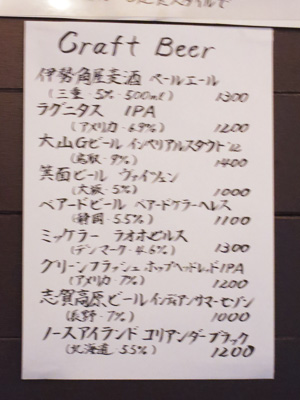 Craft Beer
伊勢角屋麦酒 ペールエール
(三重・5%・500ml) 1300
ラグニタス IPA
(アメリカ・6.9%) 1200
大山Gビール インペリアルスタウト'12
(鳥取・9%) 1400
箕面ビール ヴァイツェン
(大坂・5%) 1000
ベアードビール ベアードケラーヘレス
(静岡・5.5%) 1100
ミッケラー ラオオピルス
(デンマーク・4.6%) 1300
グリーンフラッシュ ホップヘッドレッドIPA
(アメリカ・7%) 1200
志賀高原ビール インディアンサマーセゾン
(長野・7%) 1000
ノースアイランド コリアンダーブラック
(北海道・5.5%) 1200